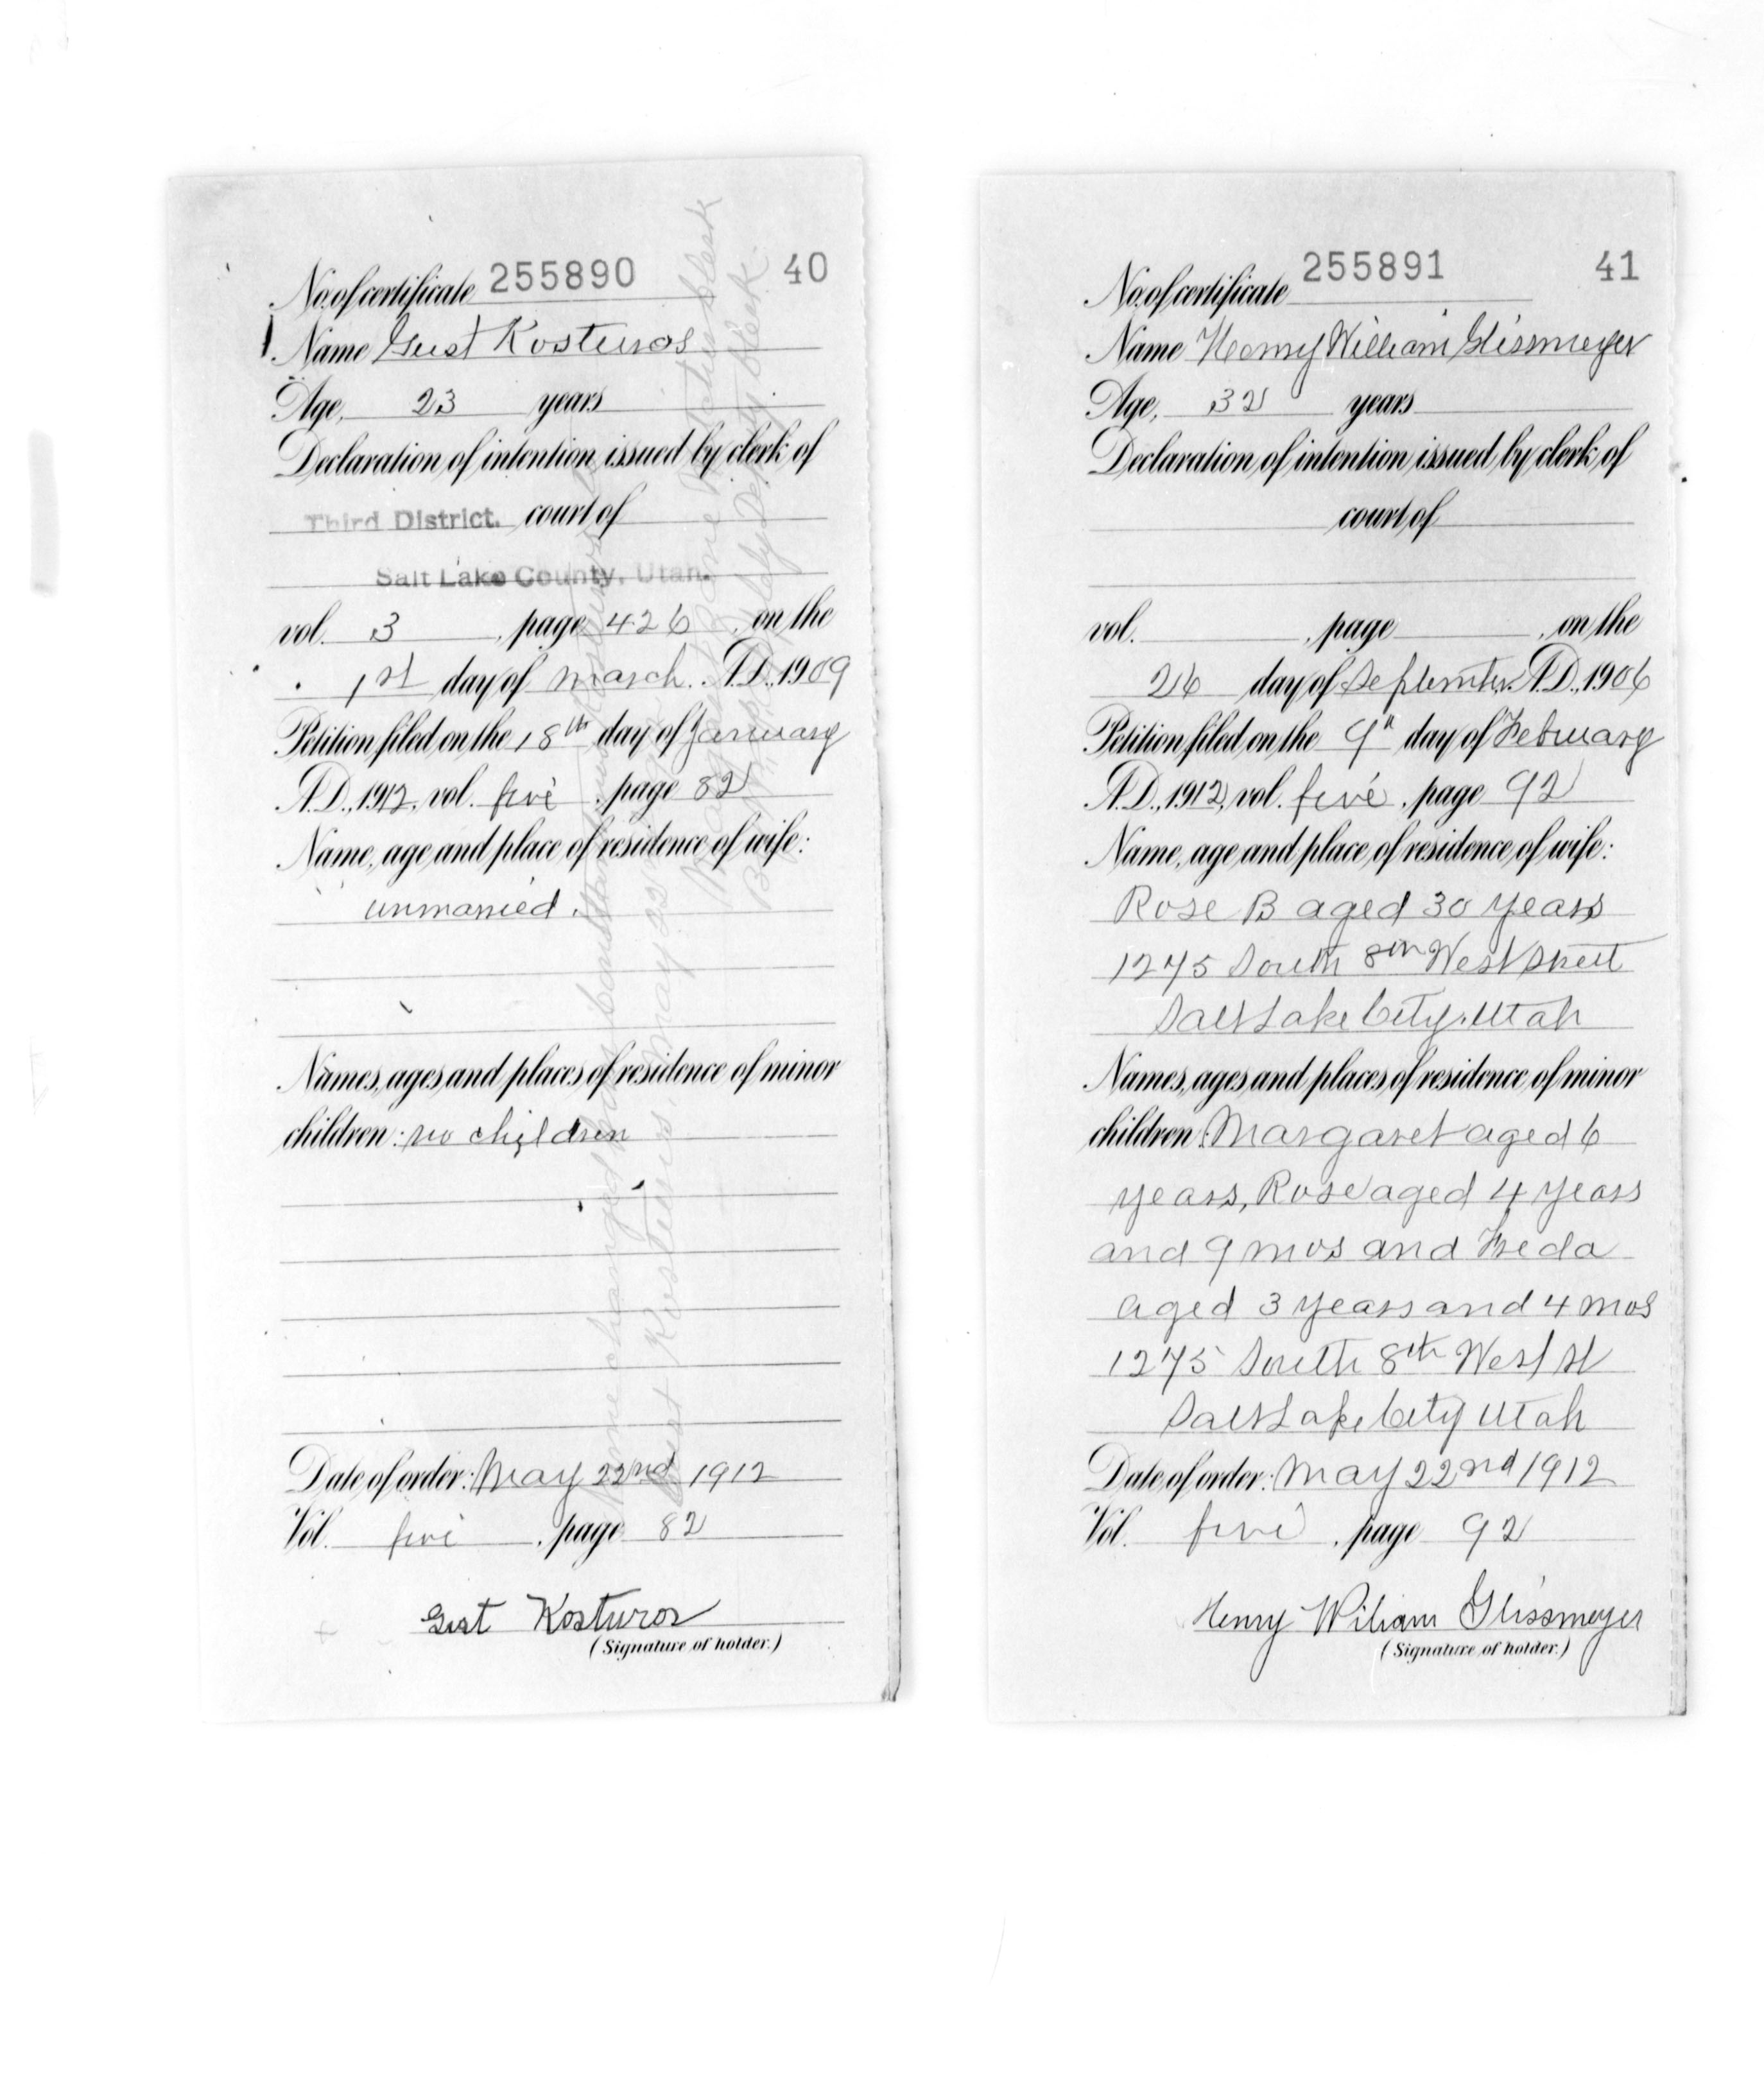 No. of certificate 255890 40
Name Gust Kosturos
Age, 23 years
Declaration of intention issued by clerk of
Third District. court of
Salt Lake County, Utah.
vol. 3, page 426, on the
1st day of March. A.D., 1909
Petition filed on the 18th day of January
A.D., 1912, vol. five, page 82
Name, age and place of residence of wife:
unmarried.
Names, ages and places of residence of minor
children: no children
Date of order: May 22nd 1912
Vol. five, page 82
Gust Kosturos
(Signature of holder.)
Name changed from
Gust Kosturos, May 22
By Deputy Clerk.
No. of certificate 255891 41
Name Henry William Glissmeyer
Age, 32 years
Declaration of intention issued by clerk of
court of
vol. , page , on the
26 day of September A.D., 1906
Petition filed on the 9th day of February
A.D., 1912, vol. five, page 92
Name, age and place of residence of wife:
Rose B aged 30 years
1275 South 8th West Street
Salt Lake City, Utah
Names, ages and places of residence of minor
children: Margaret aged 6
years, Rose aged 4 years
and 9 mos and Freda
aged 3 years and 4 mos
1275 South 8th West St
Salt Lake City Utah
Date of order: May 22nd 1912
Vol. five, page 92
Henry Wiliam Glissmeyer
(Signature of holder.)